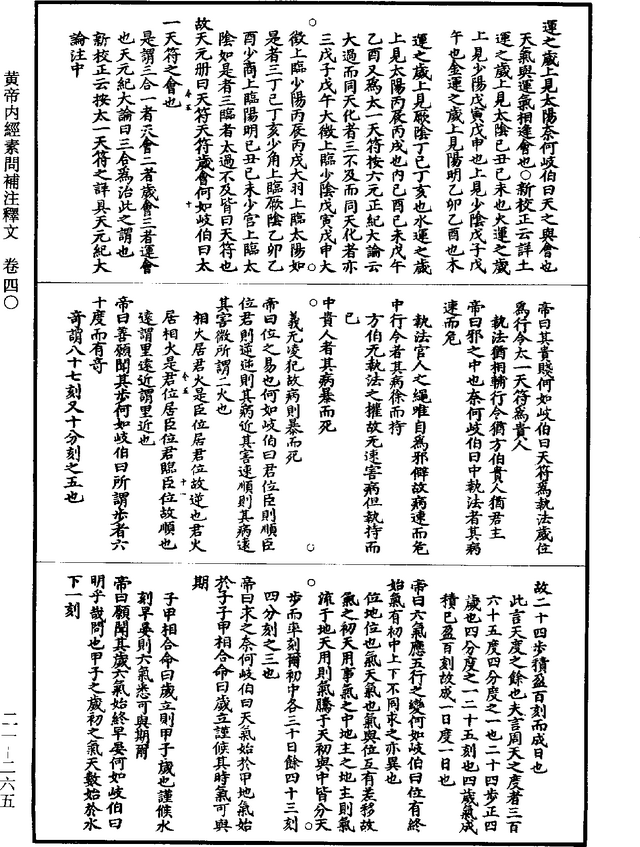 黄帝内經素問補注釋文　卷四〇
二一－二六五
運之歲上見太陽奈何岐伯曰天之與會也
天氣與運氣相逢會也〇新校正云詳土
運之歲上見太陰己丑己未也火運之歲
上見少陽戊寅戊申也上見少陰戊子戊
午也金運之歲上見陽明乙卯乙酉也木
運之歲上見厥陰丁巳丁亥也水運之歲
上見太陽丙辰丙戌也内己酉己未戊午
乙酉又爲太一天符按六元正紀大論云
大過而同天化者三不及而同天化者亦
三戊子戊午大徵上臨少陰戊寅戊申大
徵上臨少陽丙辰丙戌大羽上臨太陽如
是者三丁巳丁亥少角上臨厥陰乙卯乙
酉少商上臨陽明己丑己未少宫上臨太
陰如是者三臨者太過不及皆曰天符也
故天元册曰天符天符歲會何如岐伯曰太
一天符之會也
是謂三合一者天會二者歲會三者運會
也天元紀大論曰三合爲治此之謂也
新校正云按太一天符之詳具天元紀大
論注中
帝曰其貴賤何如岐伯曰天符爲執法歲位
爲行令太一天符爲貴人
執法猶相輔行令猶方伯貴人猶君主
帝曰邪之中也奈何岐伯曰中執法者其病
速而危
執法官人之繩唯自爲邪僻故病速而危
中行令者其病徐而持
方伯无執法之權故无速害病但執持而
已
中貴人者其病暴而死
義无凌犯故病則暴而死
帝曰位之易也何如岐伯曰君位臣則順臣
位君則逆逆則其病近其害速順則其病遠
其害微所謂二火也
相火居君火是臣位居君位故逆也君火
居相火是君位居臣位君臨臣位故順也
遠謂里遠近謂里近也
帝曰善願聞其步何如岐伯曰所謂步者六
十度而有奇
奇謂八十七刻又十分刻之五也
故二十四步積盈百刻而成日也
此言天度之餘也夫言周天之度者三百
六十五度四分度之一也二十四步正四
歲也四分度之一二十五刻也四歲氣成
積已盈百刻故成一日度一日也
帝曰六氣應五行之變何如岐伯曰位有終
始氣有初中上下不同求之亦異也
位地位也氣天氣也氣與位互有差移故
氣之初天用事氣之中地主之地主則氣
流于地天用則氣騰于天初與中皆分天
步而率刻爾初中各三十日餘四十三刻
四分刻之三也
帝曰求之奈何岐伯曰天氣始於甲地氣始
於子子甲相合命曰歲立謹候其時氣可與
期
子甲相合命曰歲立則甲子歲也謹候水
刻早晏則六氣悉可與期爾
帝曰願聞其歲六氣始終早晏何如岐伯曰
明乎哉問也甲子之歲初之氣天數始於水
下一刻